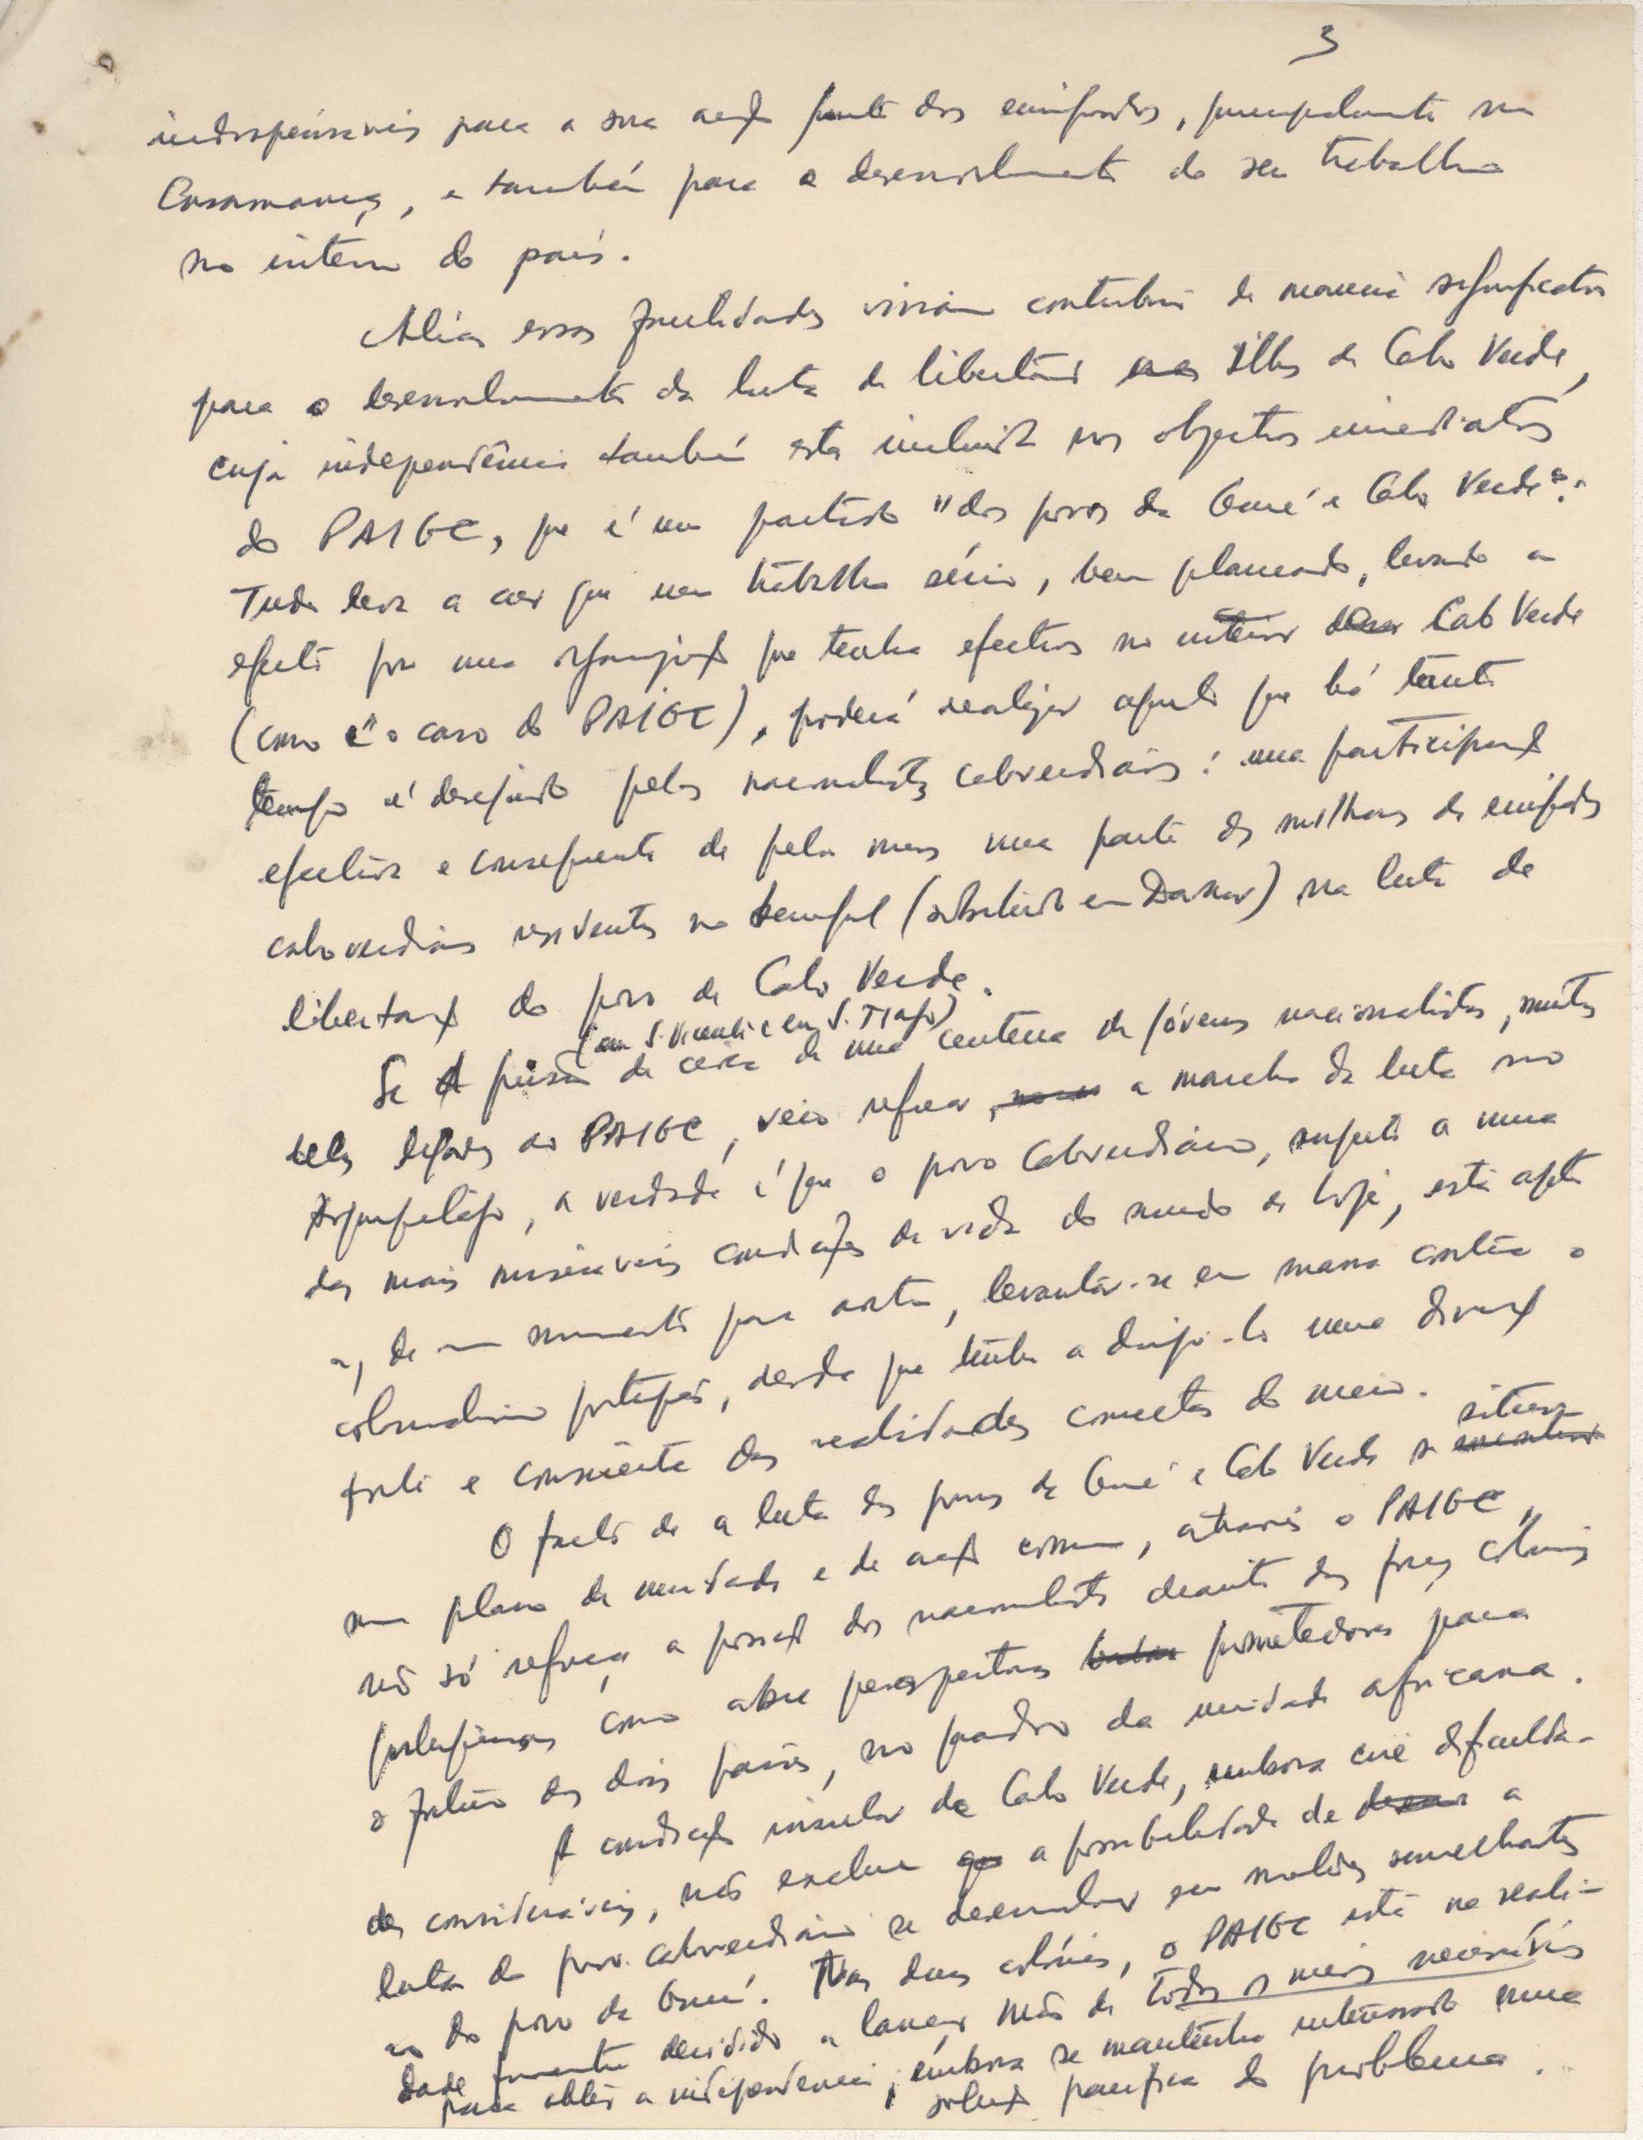 3
indispensáveis para a sua acção junto dos emigrados, principalmente na
Casamança, e também para o desenvolvimento do seu trabalho
no interior do país.
Aliás essas facilidades viriam contribuir de maneira significativa
para o desenvolvimento da luta de libertação nas Ilhas de Cabo Verde,
cuja independência também está incluída nos objectivos imediatos
do PAIGC, que é um partido "dos povos da Guiné e Cabo Verde".
Tudo leva a crer que um trabalho sério, bem planeado, levado a
efeito por uma organização que tenha efectivos no interior de Cabo Verde
(como é o caso do PAIGC), poderá realizar aquilo que há tanto
tempo é desejado pelos nacionalistas caboverdianos: uma participação
efectiva e consequente de pelo menos uma parte dos milhares de emigrados
caboverdianos residentes no Senegal (sobretudo em Dakar) na luta de
libertação do povo de Cabo Verde.
(em S. Vicente e em S. Tiago)
Se a prisão de cerca de uma centena de jóvens nacionalistas, muitos
deles ligados ao PAIGC, veio refrear, a marcha da luta no
Arquipélago, a verdade é que o povo caboverdiano, sujeito a uma
das mais miseráveis condições de vida do mundo de hoje, está apto
a, de um momento para outro, levantar-se em massa contra o
colonialismo português, desde que tenha a dirigi-lo uma direcção
forte e consciente das realidades concretas do meio.
O facto de a luta dos povos da Guiné e Cabo Verde se situar
num plano de unidade e de acção comum, através o PAIGC,
não só reforça a posição dos nacionalistas deante das forças coloniais
portuguesas como abre perspectivas prometedoras para
o futuro dos dois países, no quadro da unidade africana.
A condição insular de Cabo Verde, embora crie dificulda-
des consideráveis, não exclue a possibilidade de a
luta do povo caboverdiano se desenvolver em moldes semelhantes
ao do povo da Guiné. Nas duas colónias, o PAIGC está na reali-
dade firmemente decidido a lançar mão de todos os meios necessários
para obter a independencia, embora se mantenha interessado numa
solução pacífica do problema.